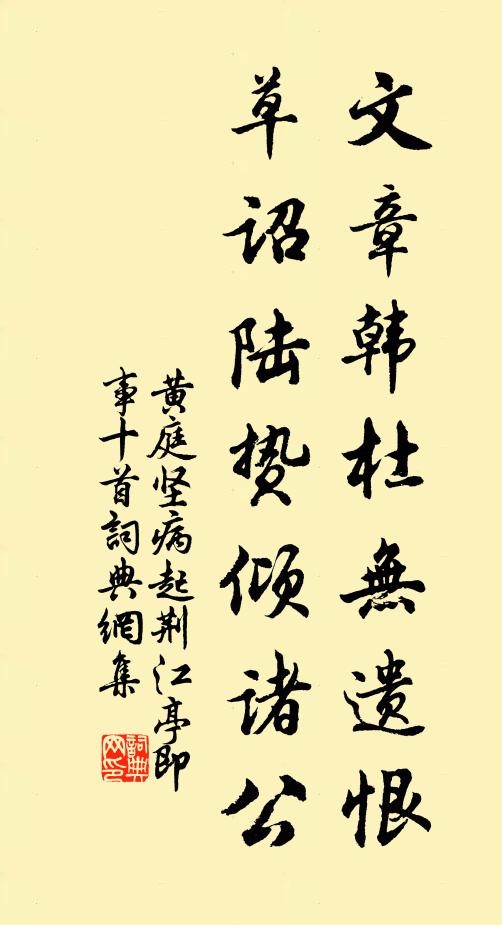 文章韩杜無遗恨
草诏陆贽倾诸公
黄庭坚病起荆江亭即
事十首詞典網集
詞典
网印